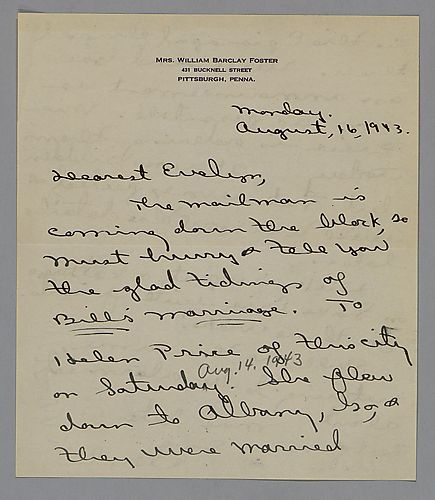 MRS. WILLIAM BARCLAY FOSTER
431 BUCKNELL STREET
PITTSBURGH, PENNA.
Monday.
August, 16, 1943.
Dearest Evelyn,
The mailman is
coming down the block, so
must hurry & tell you
the glad tidings of
Bill's marriage. To
Helen Price of this city
Aug. 14. 1943
on Saturday. She flew
down to Albany, Ga, &
they were married